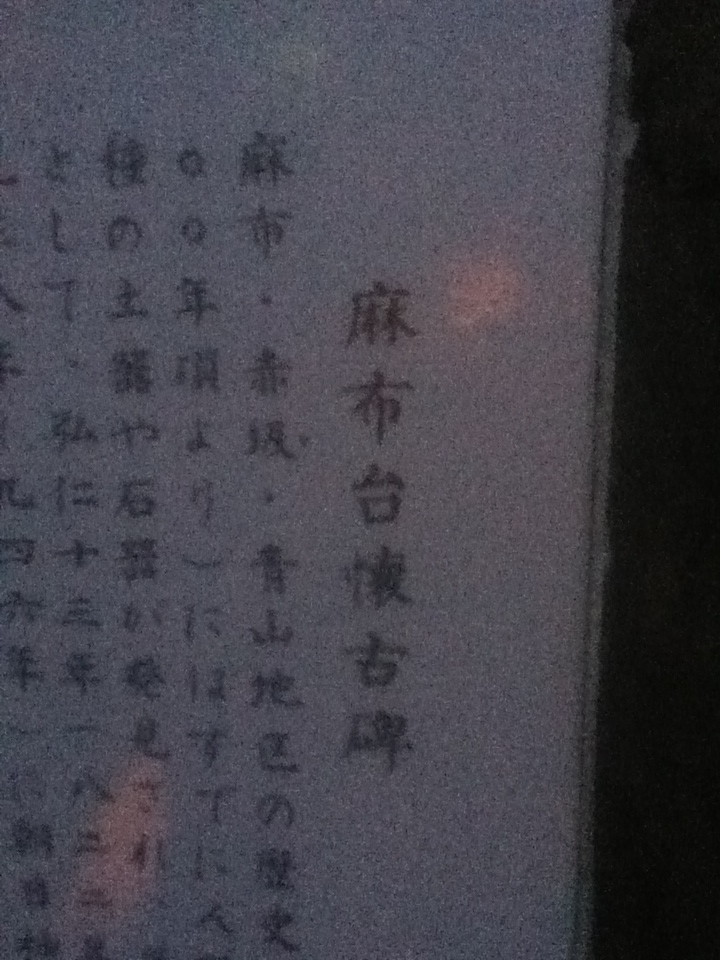 麻布台懐古碑
麻布・赤坂・青山地区の歴史
〇〇年頃より)にはすでに人
種の土器や石器が発見され
として、弘仁十三年(八二二
九四六年)に朝日